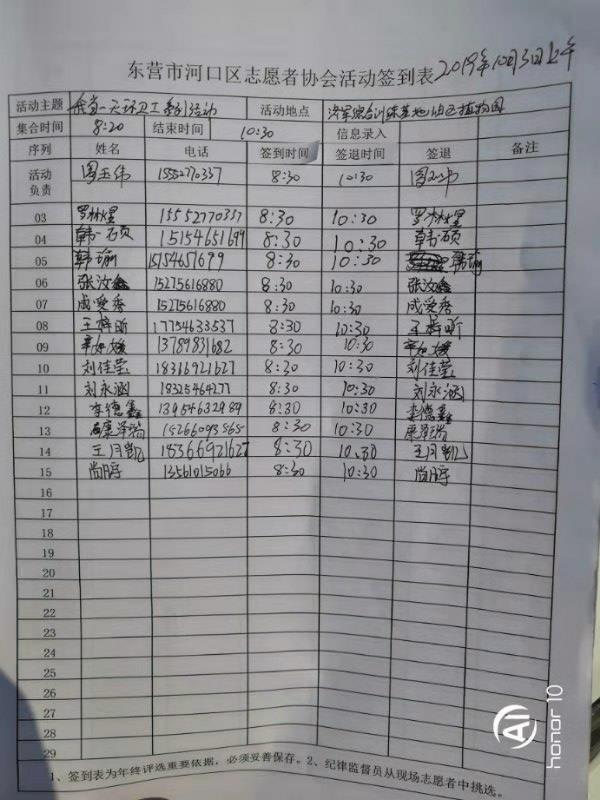 东营市河口区志愿者协会活动签到表 2019年10月3日上午
活动主题 一天环卫工 活动 活动地点 济军综合训练基地 植物园
集合时间 8:20 结束时间 10:30 信息录入
序列 姓名 电话 签到时间 签退时间 签退 备注
活动负责 周玉伟 15552770337 8:30 10:30 周玉伟
03 罗林煜 15552770337 8:30 10:30 罗林煜
04 韩一硕 15154651699 8:30 10:30 韩一硕
05 韩瑜 15154651699 8:30 10:30 韩瑜
06 张汝鑫 15275616880 8:30 10:30 张汝鑫
07 成爱秀 15275616880 8:30 10:30 成爱秀
08 王梓昕 17754633537 8:30 10:30 王梓昕
09 13789831682 8:30 10:30
10 刘佳莹 18366921627 8:30 10:30 刘佳莹
11 刘永涵 18325464277 8:30 10:30 刘永涵
12 李德鑫 13954632989 8:30 10:30 李德鑫
13 康泽瑞 15266093565 8:30 10:30 康泽瑞
14 王月凯 18366921627 8:30 10.30 王月凯
15 尚醇 13561015066 8:30 10:30 尚醇
16
17
18
19
20
21
22
23
24
25
26
27
28
29
1、签到表为年终评选重要依据，必须妥善保存。2、纪律监督员从现场志愿者中挑选。
honor 10